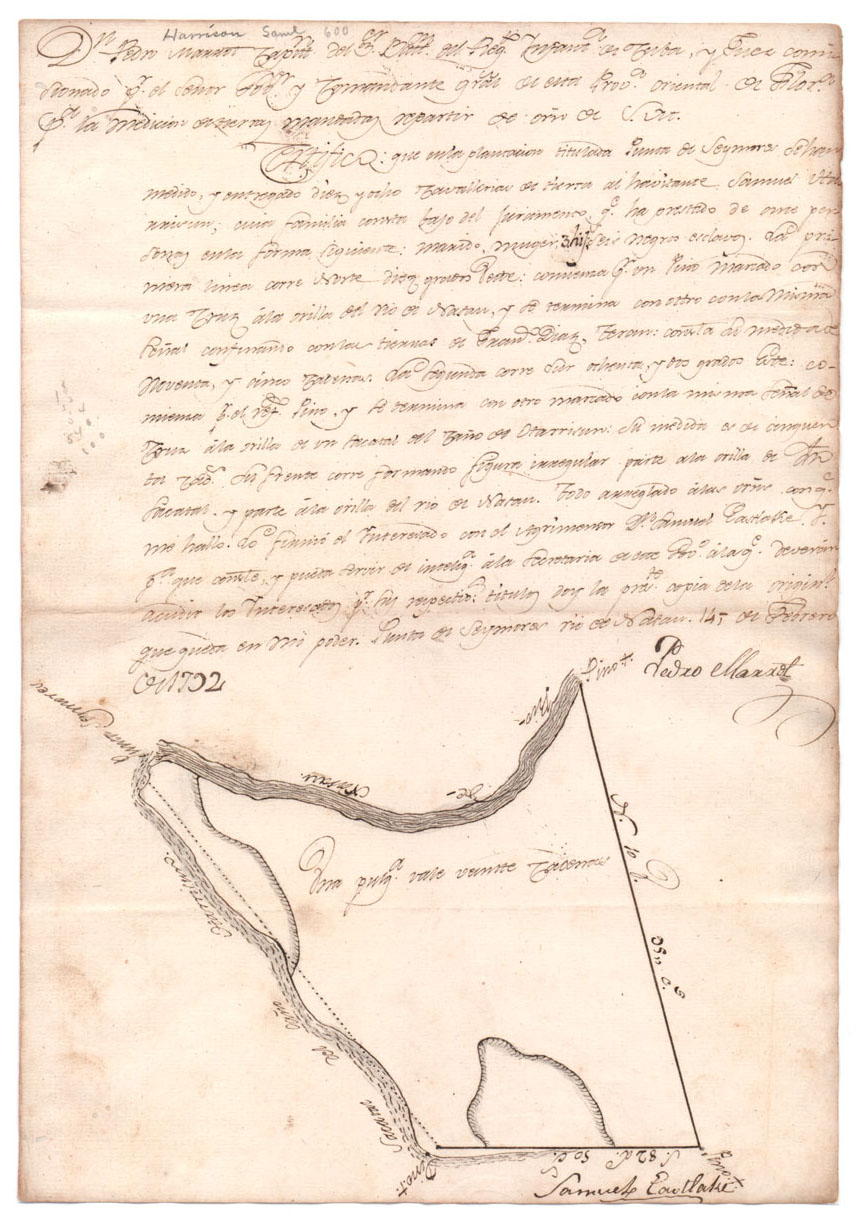 Harrison Saml 600
Dn. Pedro Marrot Capitn. del Regto. Infanta. de Cuba, y Juez comi-
sionado pr. el Señor Gobr. y Comandante gral de esta Prova. oriental de Flora.
pa. la medicion de tierras mandadas repartir de orn de S. M.
Certifico: que en la plantacion titulada Punta de Seymores se han
medido, y entregado diez y ocho Cavallerias de tierra al havitante Samuel Ha-
rrison; cuia familia consta bajo del Juramento, qe. ha prestado de once per-
sonas en la forma siguiente: marido, muger, 3 hijs. seis negros esclavos. La pri-
mera linea corre Norte diez grados Oeste: comienza pr. un Pino marcado con
una Cruz à la orilla del rio de Nasau, y se termina con otro con la misma
señal confinando con las tierras de Diaz,
Noventa, y cinco Cadenas. La segunda corre Sur ochenta, y dos grados Este: co-
miensa pr. el Pino, y se termina con otro marcado con la misma señal de
Cruz à la orilla de un Sacatal del Caño de Otarrison: su medida es de cinquen-
ta Cads. Su frente corre formando figura irregular parte a la orilla de
Sacatal, y parte à la orilla del rio de Nasau. Todo arreglado à las orns. con qe.
me hallo. Lo firmó el Interesado con el Agrimensor Dn. Samuel Eastlake. Y
pa. que conste, y pueda servir de inteliga. à la Secretaria de este Gbo. à la qe. deverán
acudir los Interesados pr. sus respectivos titulos doy la prete. copia de la original
que queda en mi poder. Punta de Seymores rio de Nasau. 14, de Febrero
de 1792
Pedro Marrot
Pino +.
Rio
de
Nasau
N. 10 O.
95 Cs.
Una pulga. vale veinte Cadenas
Caño
del
Sacatal
Pino +.
S. 82 E. 50 Cs.
Pino +.
Samuel Eastlake